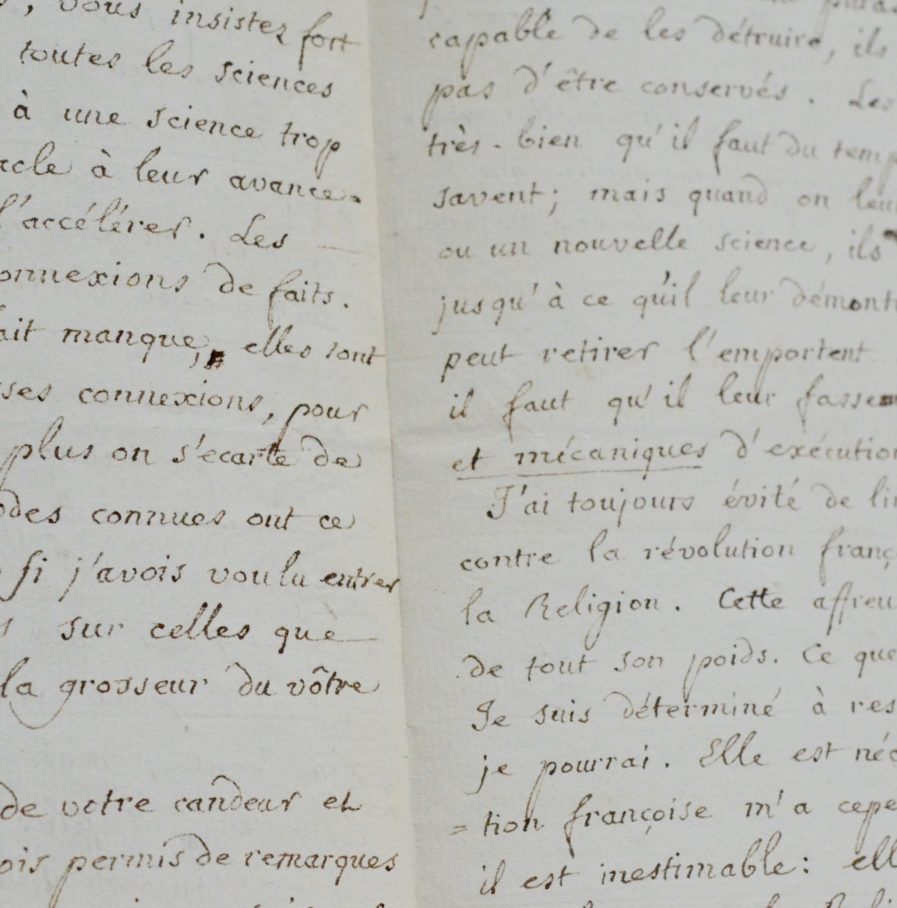 , vous insistez fort
toutes les sciences
à une science trop
acle à leur avance=
l'accélérer. Les
onnexions de faits.
ait manque, elles sont
ses connexions, pour
plus on s'ecarte de
odes connues ont ce
si j'avois voulu entrer
s sur celles que
la grosseur du vôtre
de votre candeur et
ois permis de remarques
capable de les détruire, ils
pas d'être conservés. Les
très-bien qu'il faut du temp
savent; mais quand on leur
ou un nouvelle science, ils
jusqu'à ce qu'il leur démont
peut retirer l'emportent
il faut qu'il leur fasse
et mécaniques d'exécution
J'ai toujours évité de li
contre la révolution franç
la Religion. Cette affreu
de tout son poids. Ce que
Je suis déterminé à res
je pourrai. Elle est néc
=tion françoise m'a cepe
il est inestimable: ell